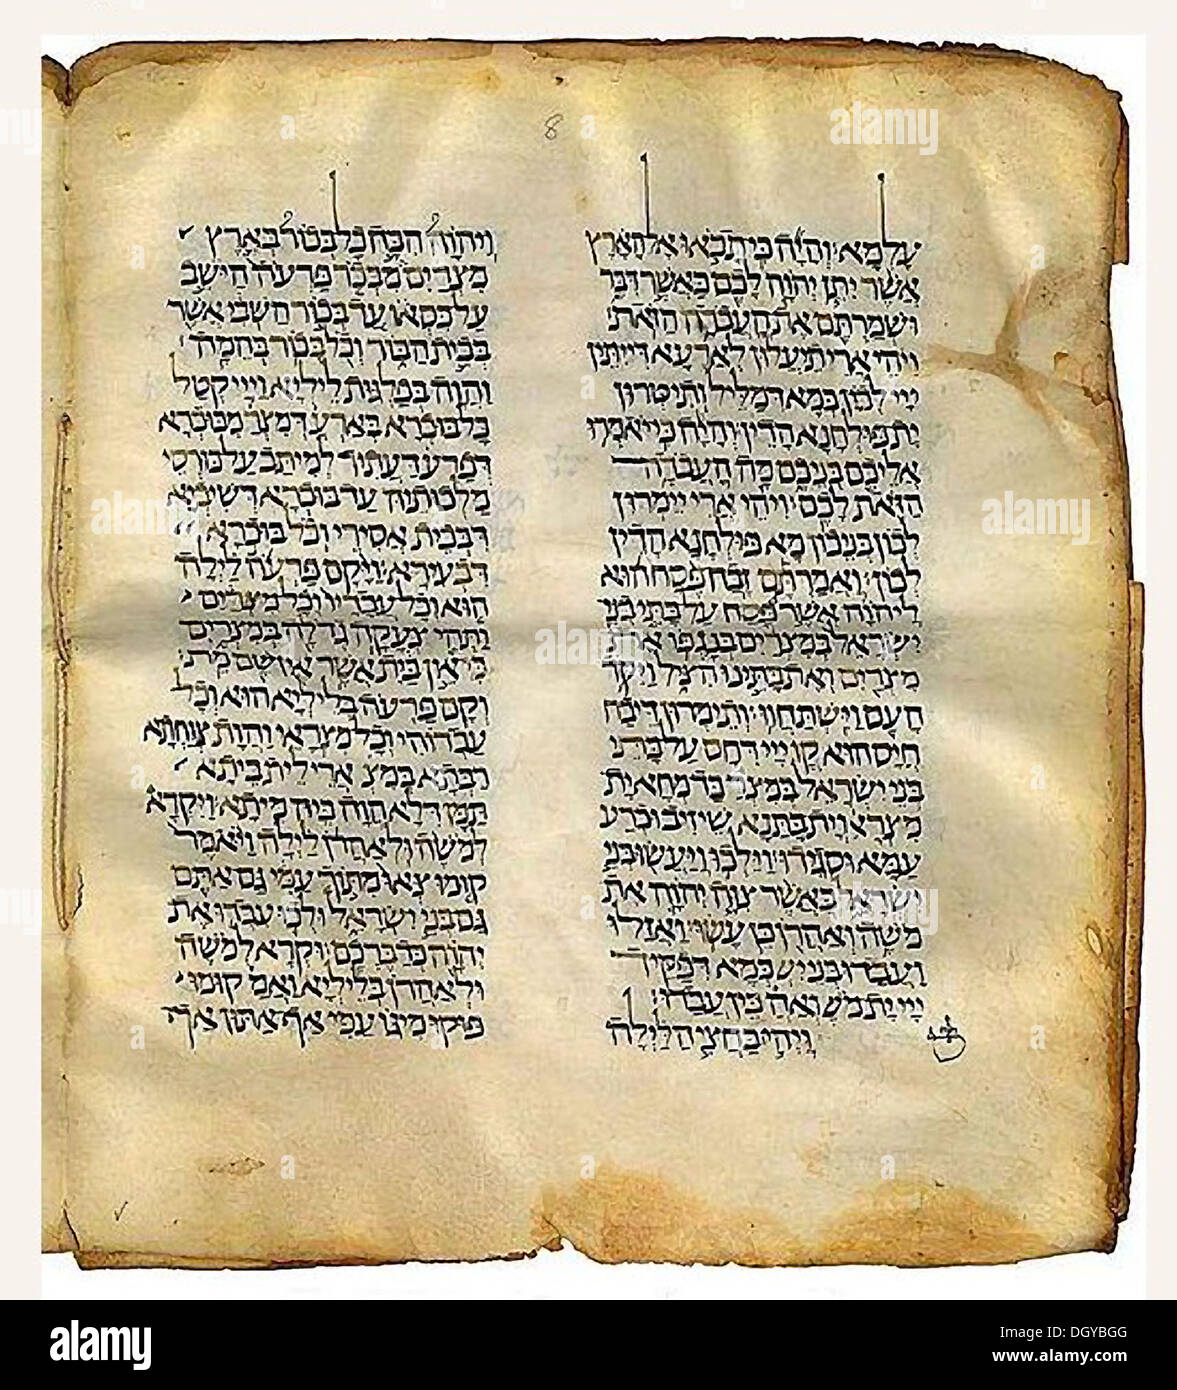 8
עלמא׃ והיה כי תבאו אל הארץ
אשר יתן יהוה לכם כאשר דבר
ושמרתם את העבדה הזאת׃
ויהי ארי תעלון לארעא דייתין
ייי לכון כמא דמליל ותיטרון
ית פולחנא הדין׃ והיה כי יאמרו
אליכם בניכם מה העבדה
הזאת לכם׃ ויהי ארי יימרון
לכון בניכון מא פולחנא הדין
לכון׃ ואמרתם זבח פסח הוא
ליהוה אשר פסח על בתי בני
ישראל במצרים בנגפו את
מצרים ואת בתינו הציל ויקד
העם וישתחוו׃ ותימרון דיבח
חייס הוא קדם ייי דחס על בתי
בני ישראל במצרים כד מחא ית
מצראי וית בתנא שיזיב וכרע
עמא וסגידו׃ וילכו ויעשו בני
ישראל כאשר צוה יהוה את
משה ואהרן כן עשו׃ ואזלו
ועבדו בני יש כמא דפקיד
ייי ית מש ואה כין עבדו׃
ויהי בחצי הלילה
ויהוה הכה כל בכור בארץ
מצרים מבכר פרעה הישב
על כסאו עד בכור השבי אשר
בבית הבור וכל בכור בהמה׃
והוה בפלגות ליליא וייי קטל
כל בוכרא בארעא דמצר מבוכרא
דפרעה דעתיד למיתב על כורסי
מלכותיה עד בוכרא דשיביא
דבבית אסירי וכל בוכרא
דבעירא׃ ויקם פרעה לילה
הוא וכל עבדיו וכל מצרים
ותהי צעקה גדלה במצרים
כי אין בית אשר אין שם מת׃
וקם פרעה בליליא הוא וכל
עבדוהי וכל מצראי והות צוחתא
רבתא במצ ארי לית ביתא
תמן דלא הוה ביה מיתא׃ ויקרא
למשה ולאהרן לילה ויאמר
קומו צאו מתוך עמי גם אתם
גם בני ישראל ולכו עבדו את
יהוה כדברכם׃ וקרא למשה
ולאהרן בליליא ואמ קומו
פוקו מיגו עמי אף אתון אף
alamy
Image ID: DGYBGG
www.alamy.com